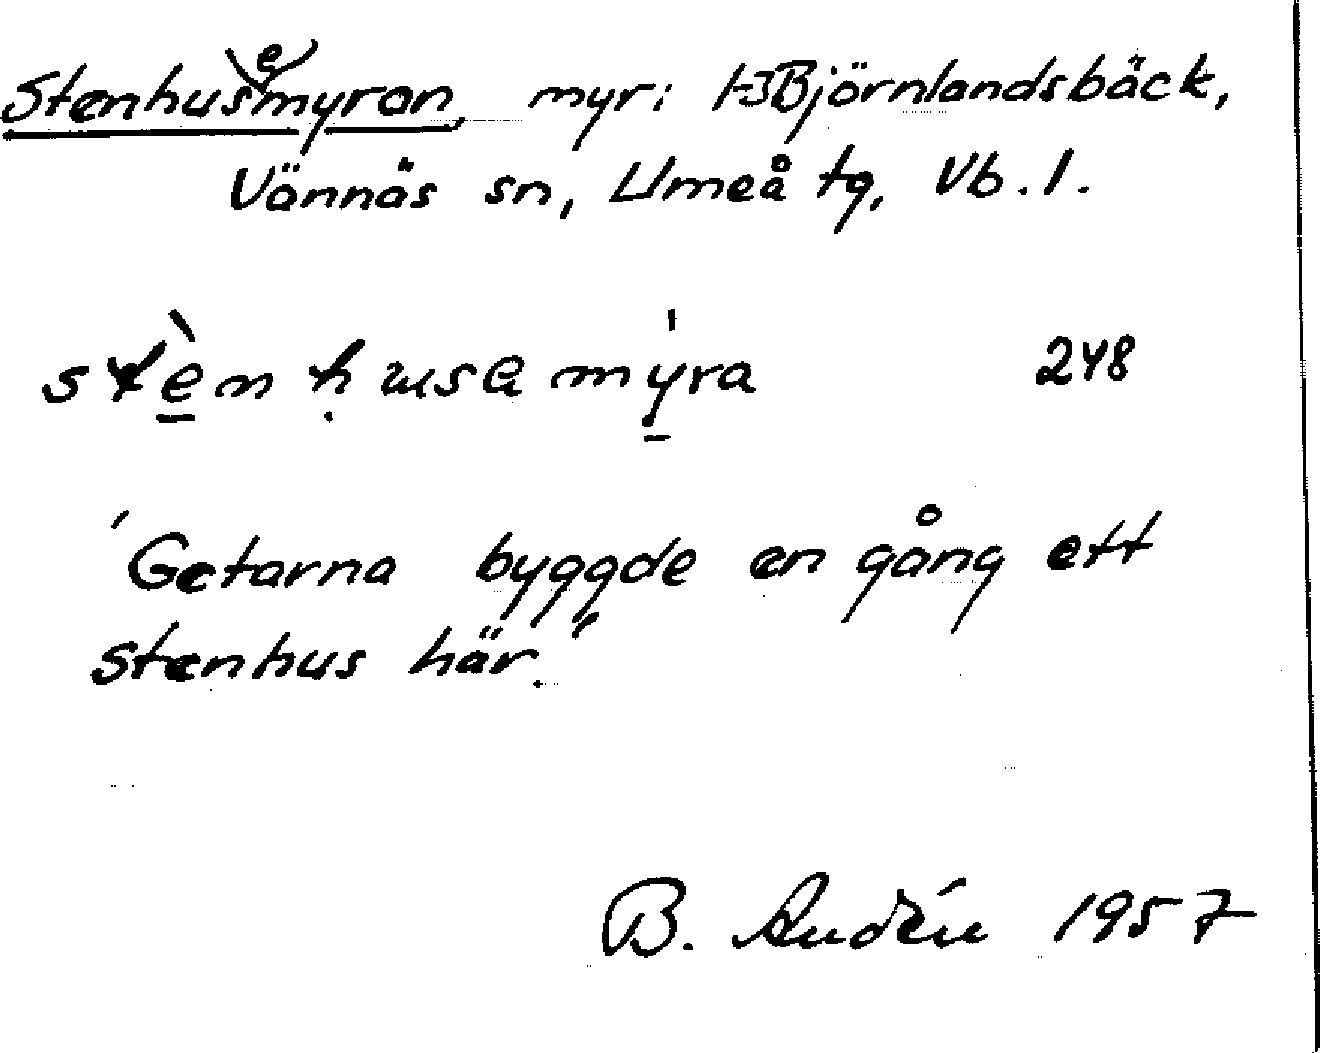 Stenhusemyran, myr: Björnlandsbäck,
Vännäs sn, Umeå tg, Vb. l.
stènhusemýra 248
'Getarna byggde en gång ett
stenhus här.'
B. Audén 1957